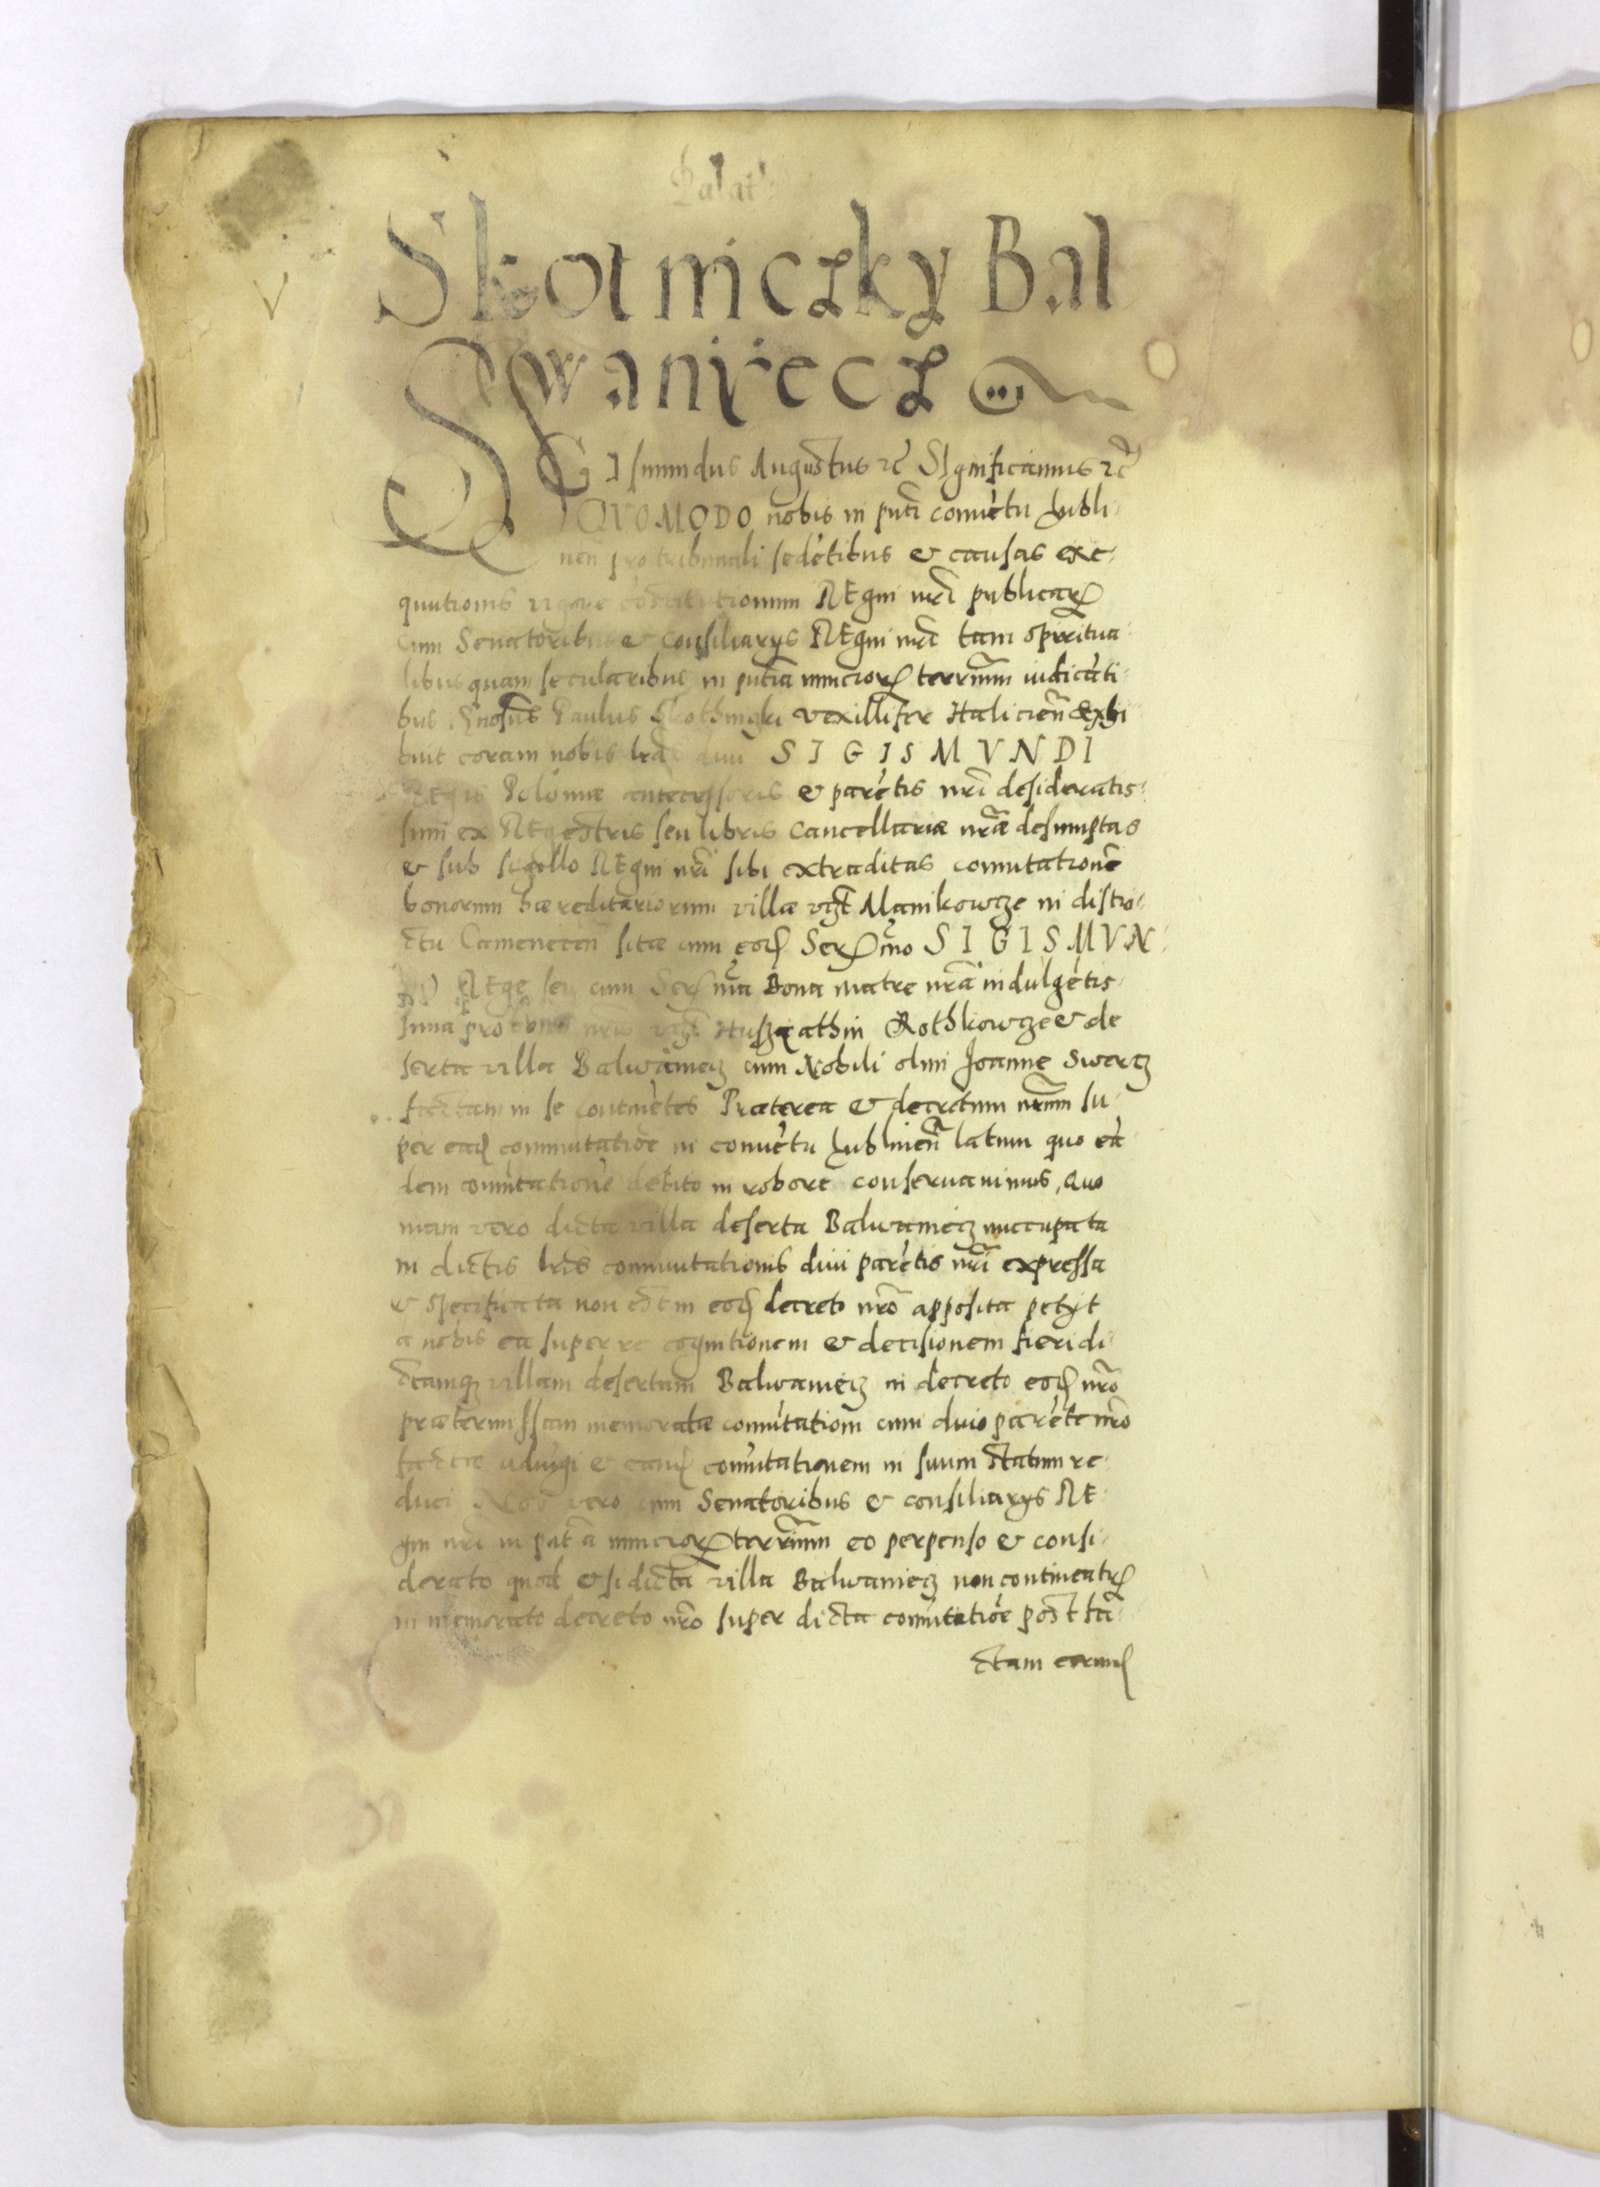 Palat
Skotniczky Bal
waniyecz
SIGIsmundus Augustus rc̃ SIgnificamus rc̃
QVOMODO nobis in pñti conuẽtu Lubli
nen̄ pro tribunali sedẽtibus & causas exe
quutionis vigore cõstitutionum REgni nr̃i publicar
cum Senatoribus & Consiliarys REgni nr̃i tam spiritua
libus quam secularibus in pñtia nuncior terrarum iudicãti
bus Gnosus Paulus Skothnyczki vexillifer Haliciẽn Exhi
buit coram nobis lr̃as diui SIGISMVNDI
REgis Poloniae antecessoris & parẽtis nr̃i desideratis
simi ex REgestris seu libris Cancellariæ nr̃æ desumptas
& sub sigillo REgni nr̃i sibi extraditas comutationẽ
bonorum hæreditariorum villæ vz̃t Manikowcze in distri
ctu Camenecen̄ sitæ cum eod Ser mo SIGISMVN
DO REge seu cum Ser ma Bona matre nr̃a indulgẽtis
sima pro bonis nr̃is vz̃t Huszyathin Rothkowcze & de
serta villa Balwaniecz cum Nobili olim Joanne Swercz
factam in se continẽtes Præterea & decretum nr̃um su
per ead commutatiõe in conuẽtu Lublinen̄ latum quo eã
dem comutationẽ debito in robore conseruauimus, Quo
niam vero dicta villa deserta Balwaniecz nuncupata
in dictis lr̃is commutationis diui parẽtis nr̃i expressa
& specificata non est in eod decreto nr̃o apposita petyt
a nobis ea super re cognitionem & decisionem fieri di
ctamq villam desertam Balwaniecz in decreto eod nr̃o
prætermissam memoratæ comutationi cum diuo parẽte nr̃o
factæ adiũgi & eand comutationem in suum statum re
duci Nos vero cum Senatoribus & consiliarys RE
gni nr̃i in pñtia nuncior terrarum eo perpenso & consi
derato quod etsi dicta villa Balwaniecz non contineatur
in memorato decreto nr̃o super dicta comutatiõe post fa
ctam earund